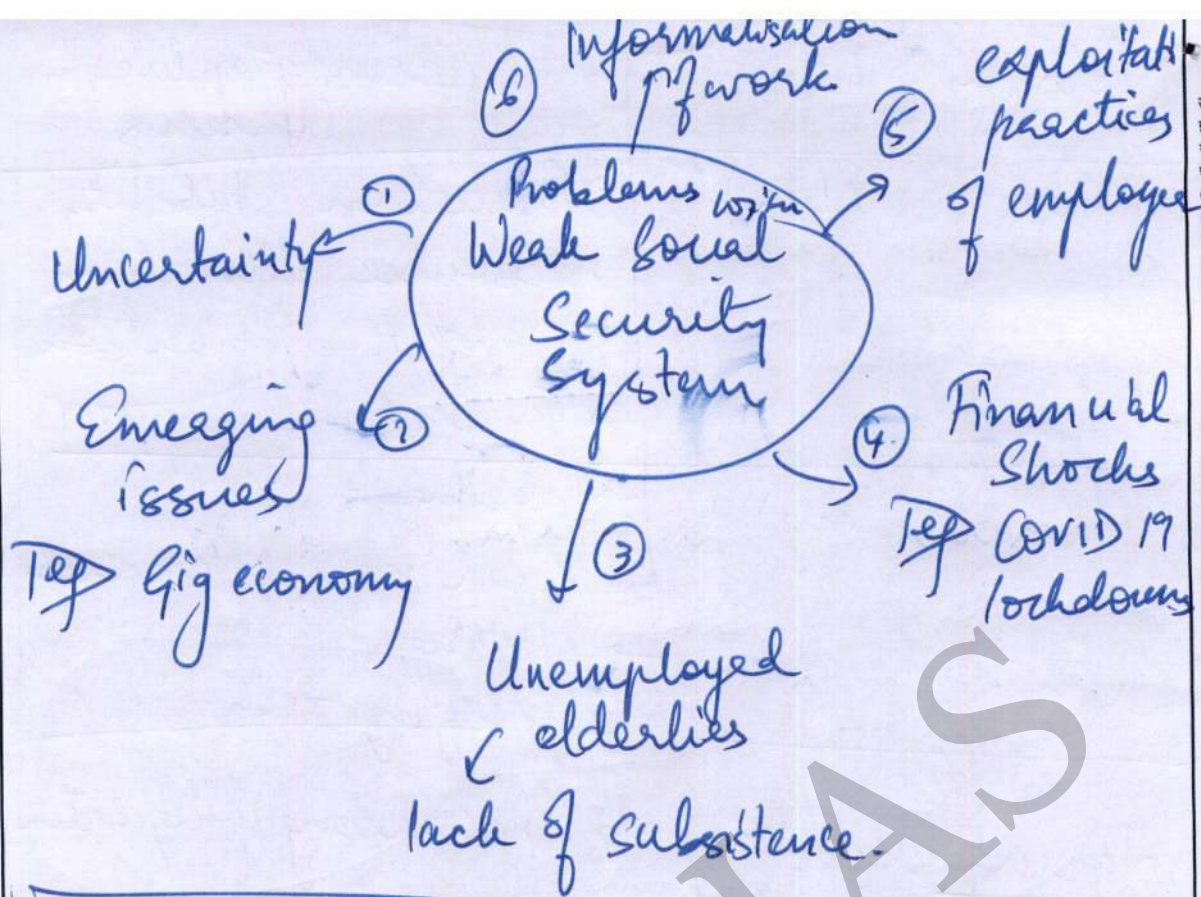 ⑥ Informalisation
of work
⑤ exploitati
practices
of employee
Problems with
Weak Social
Security
System
① Uncertainty
② Emerging
issues
Eg Gig economy
③ Unemployed
elderlies
lack of subsistence.
④ Financial
Shocks
Eg COVID 19
lockdowns
IAS